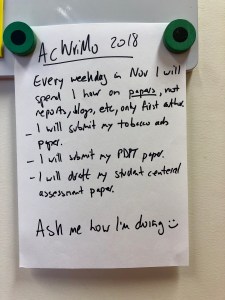 AcWriMo 2018
Every weekday in Nov I will
spend 1 hour on papers, not
reports, blogs, etc, only first author
- I will submit my tobacco ads
paper.
- I will submit my PDPT paper.
- I will draft my student centered
assessment paper.
Ask me how I'm doing ☺